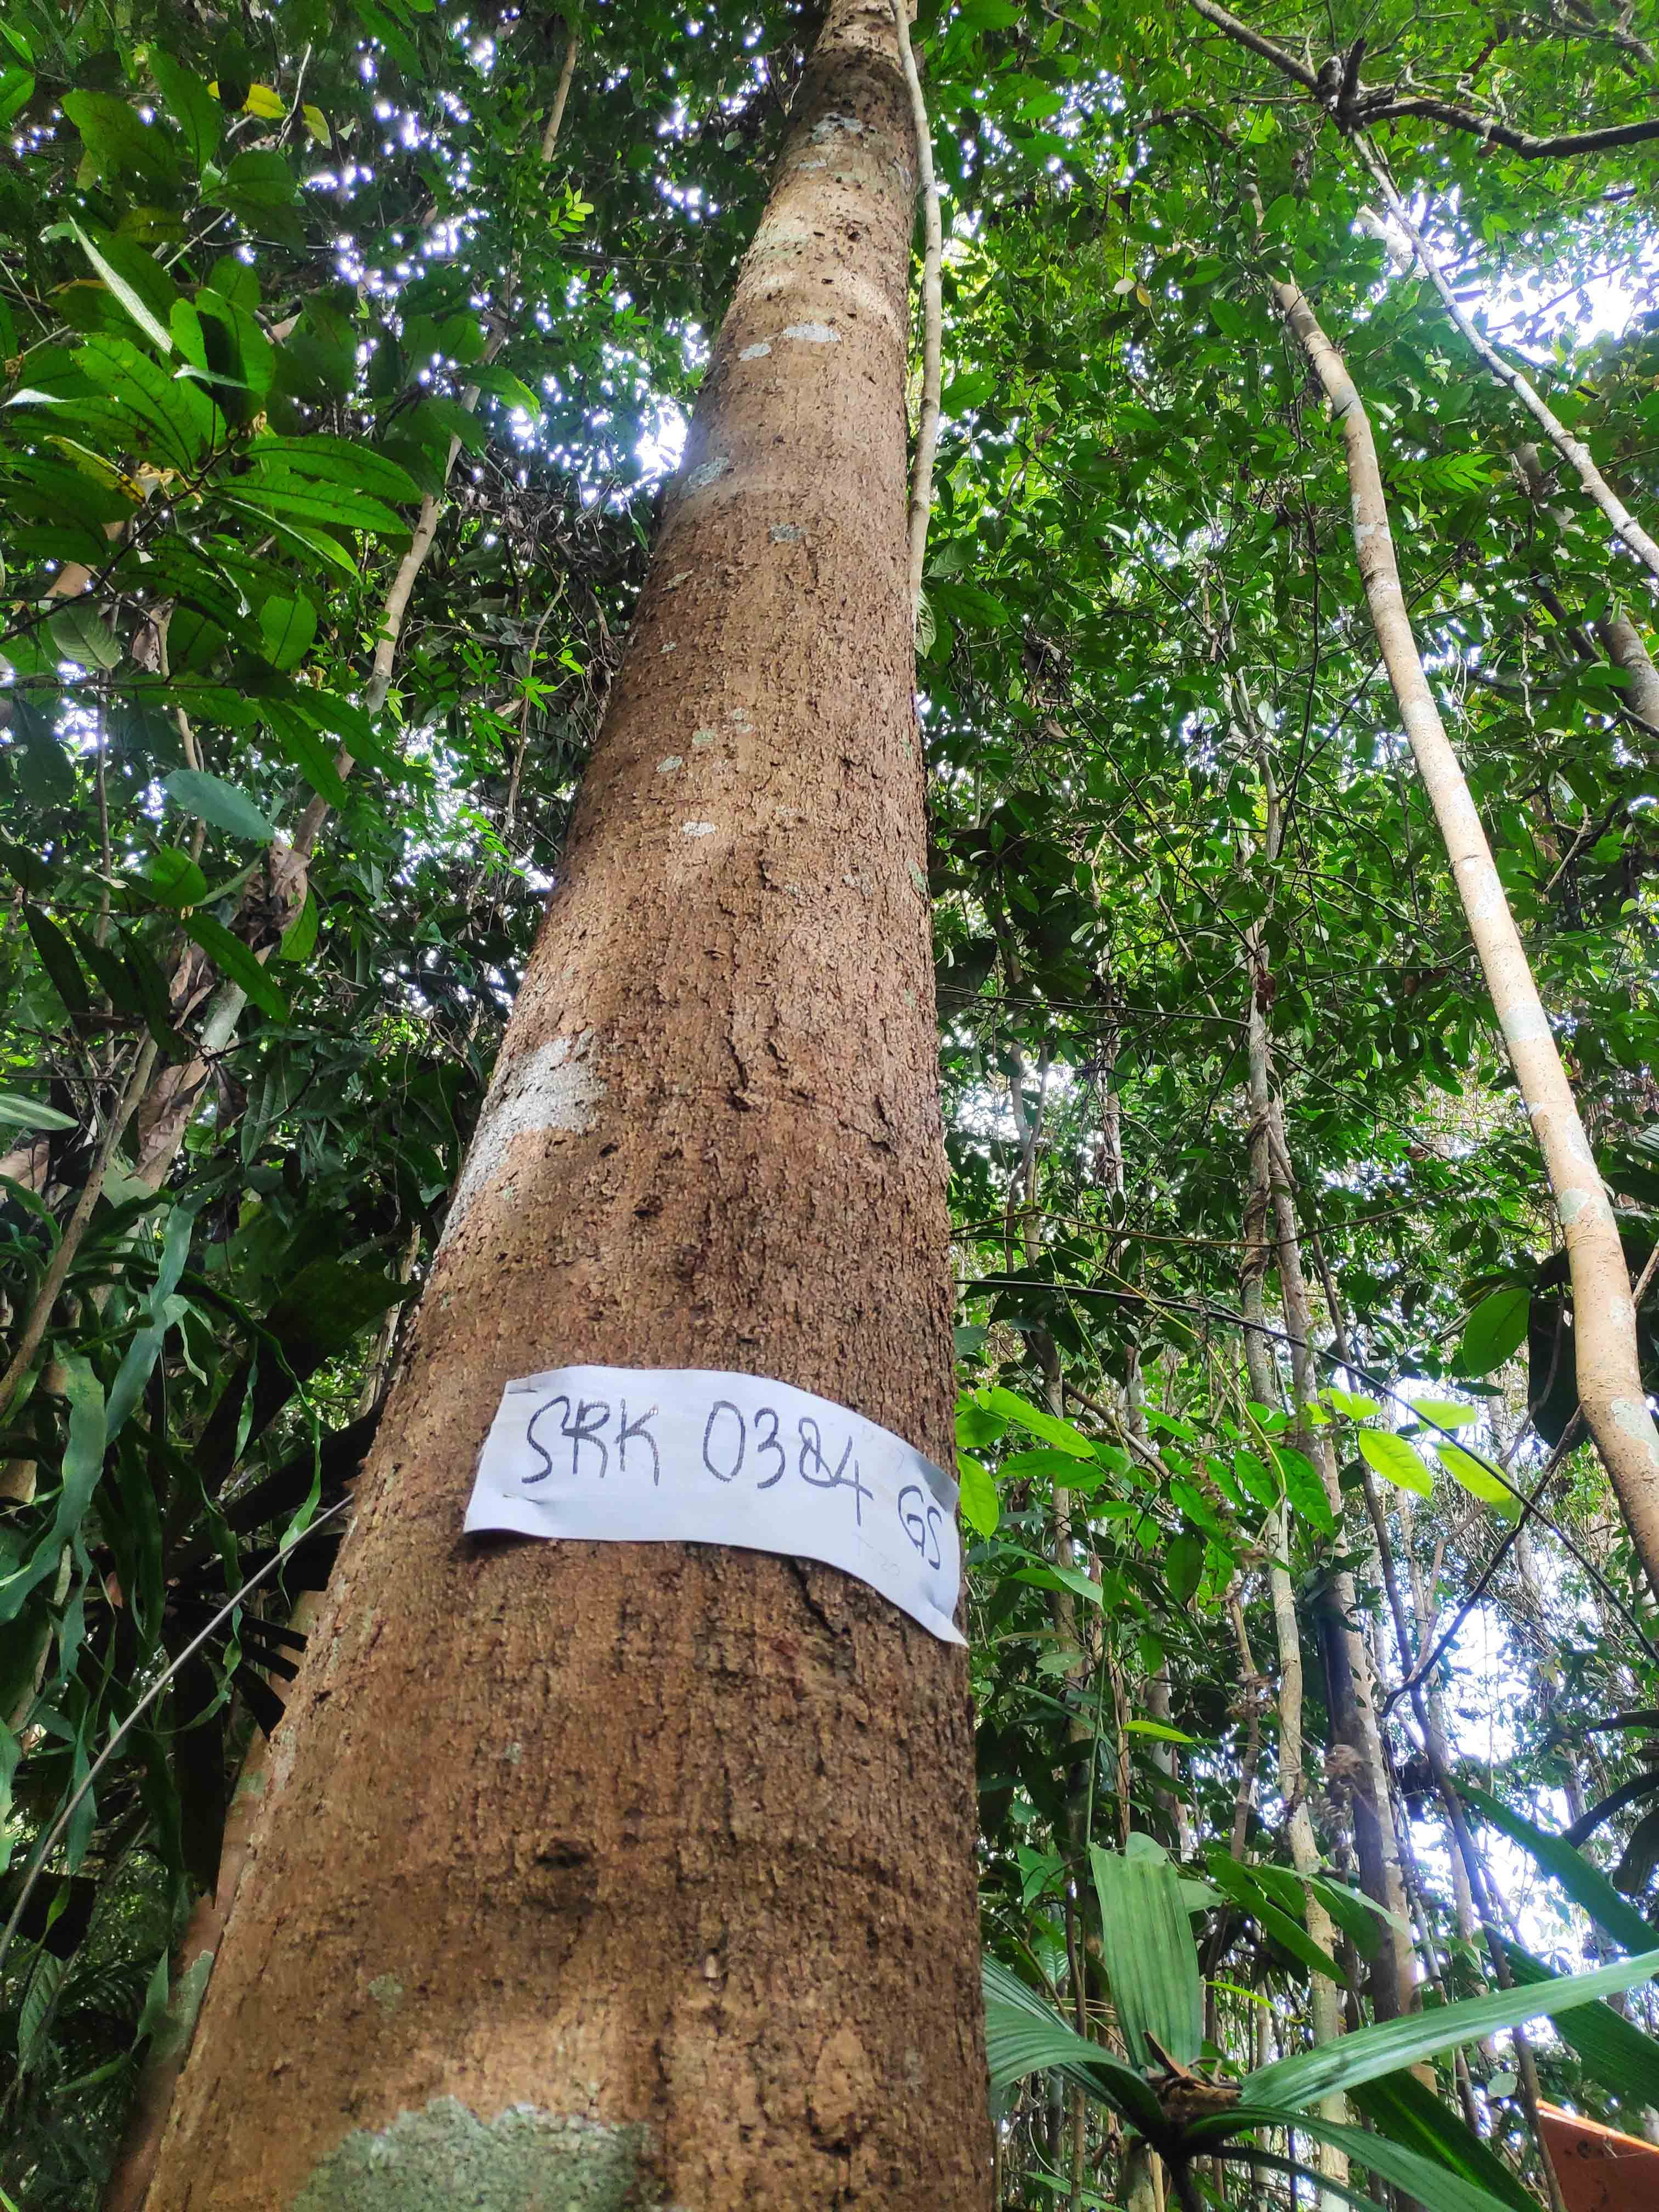 SRK 0384 GS